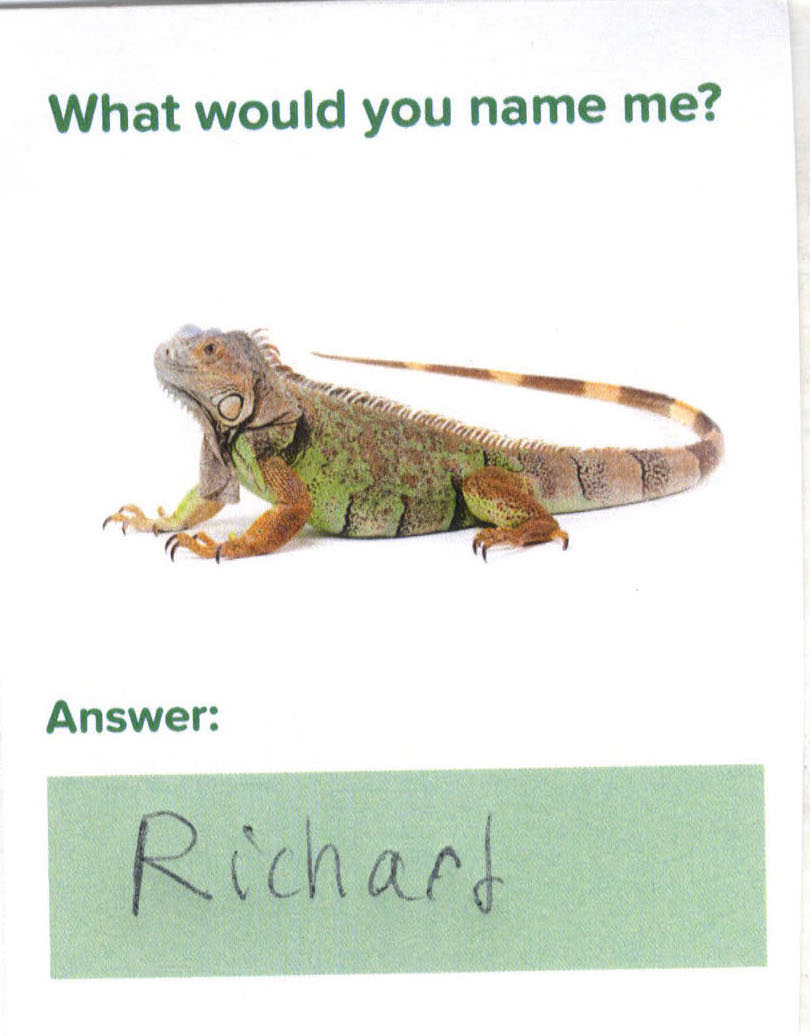 What would you name me?
Answer:
Richard